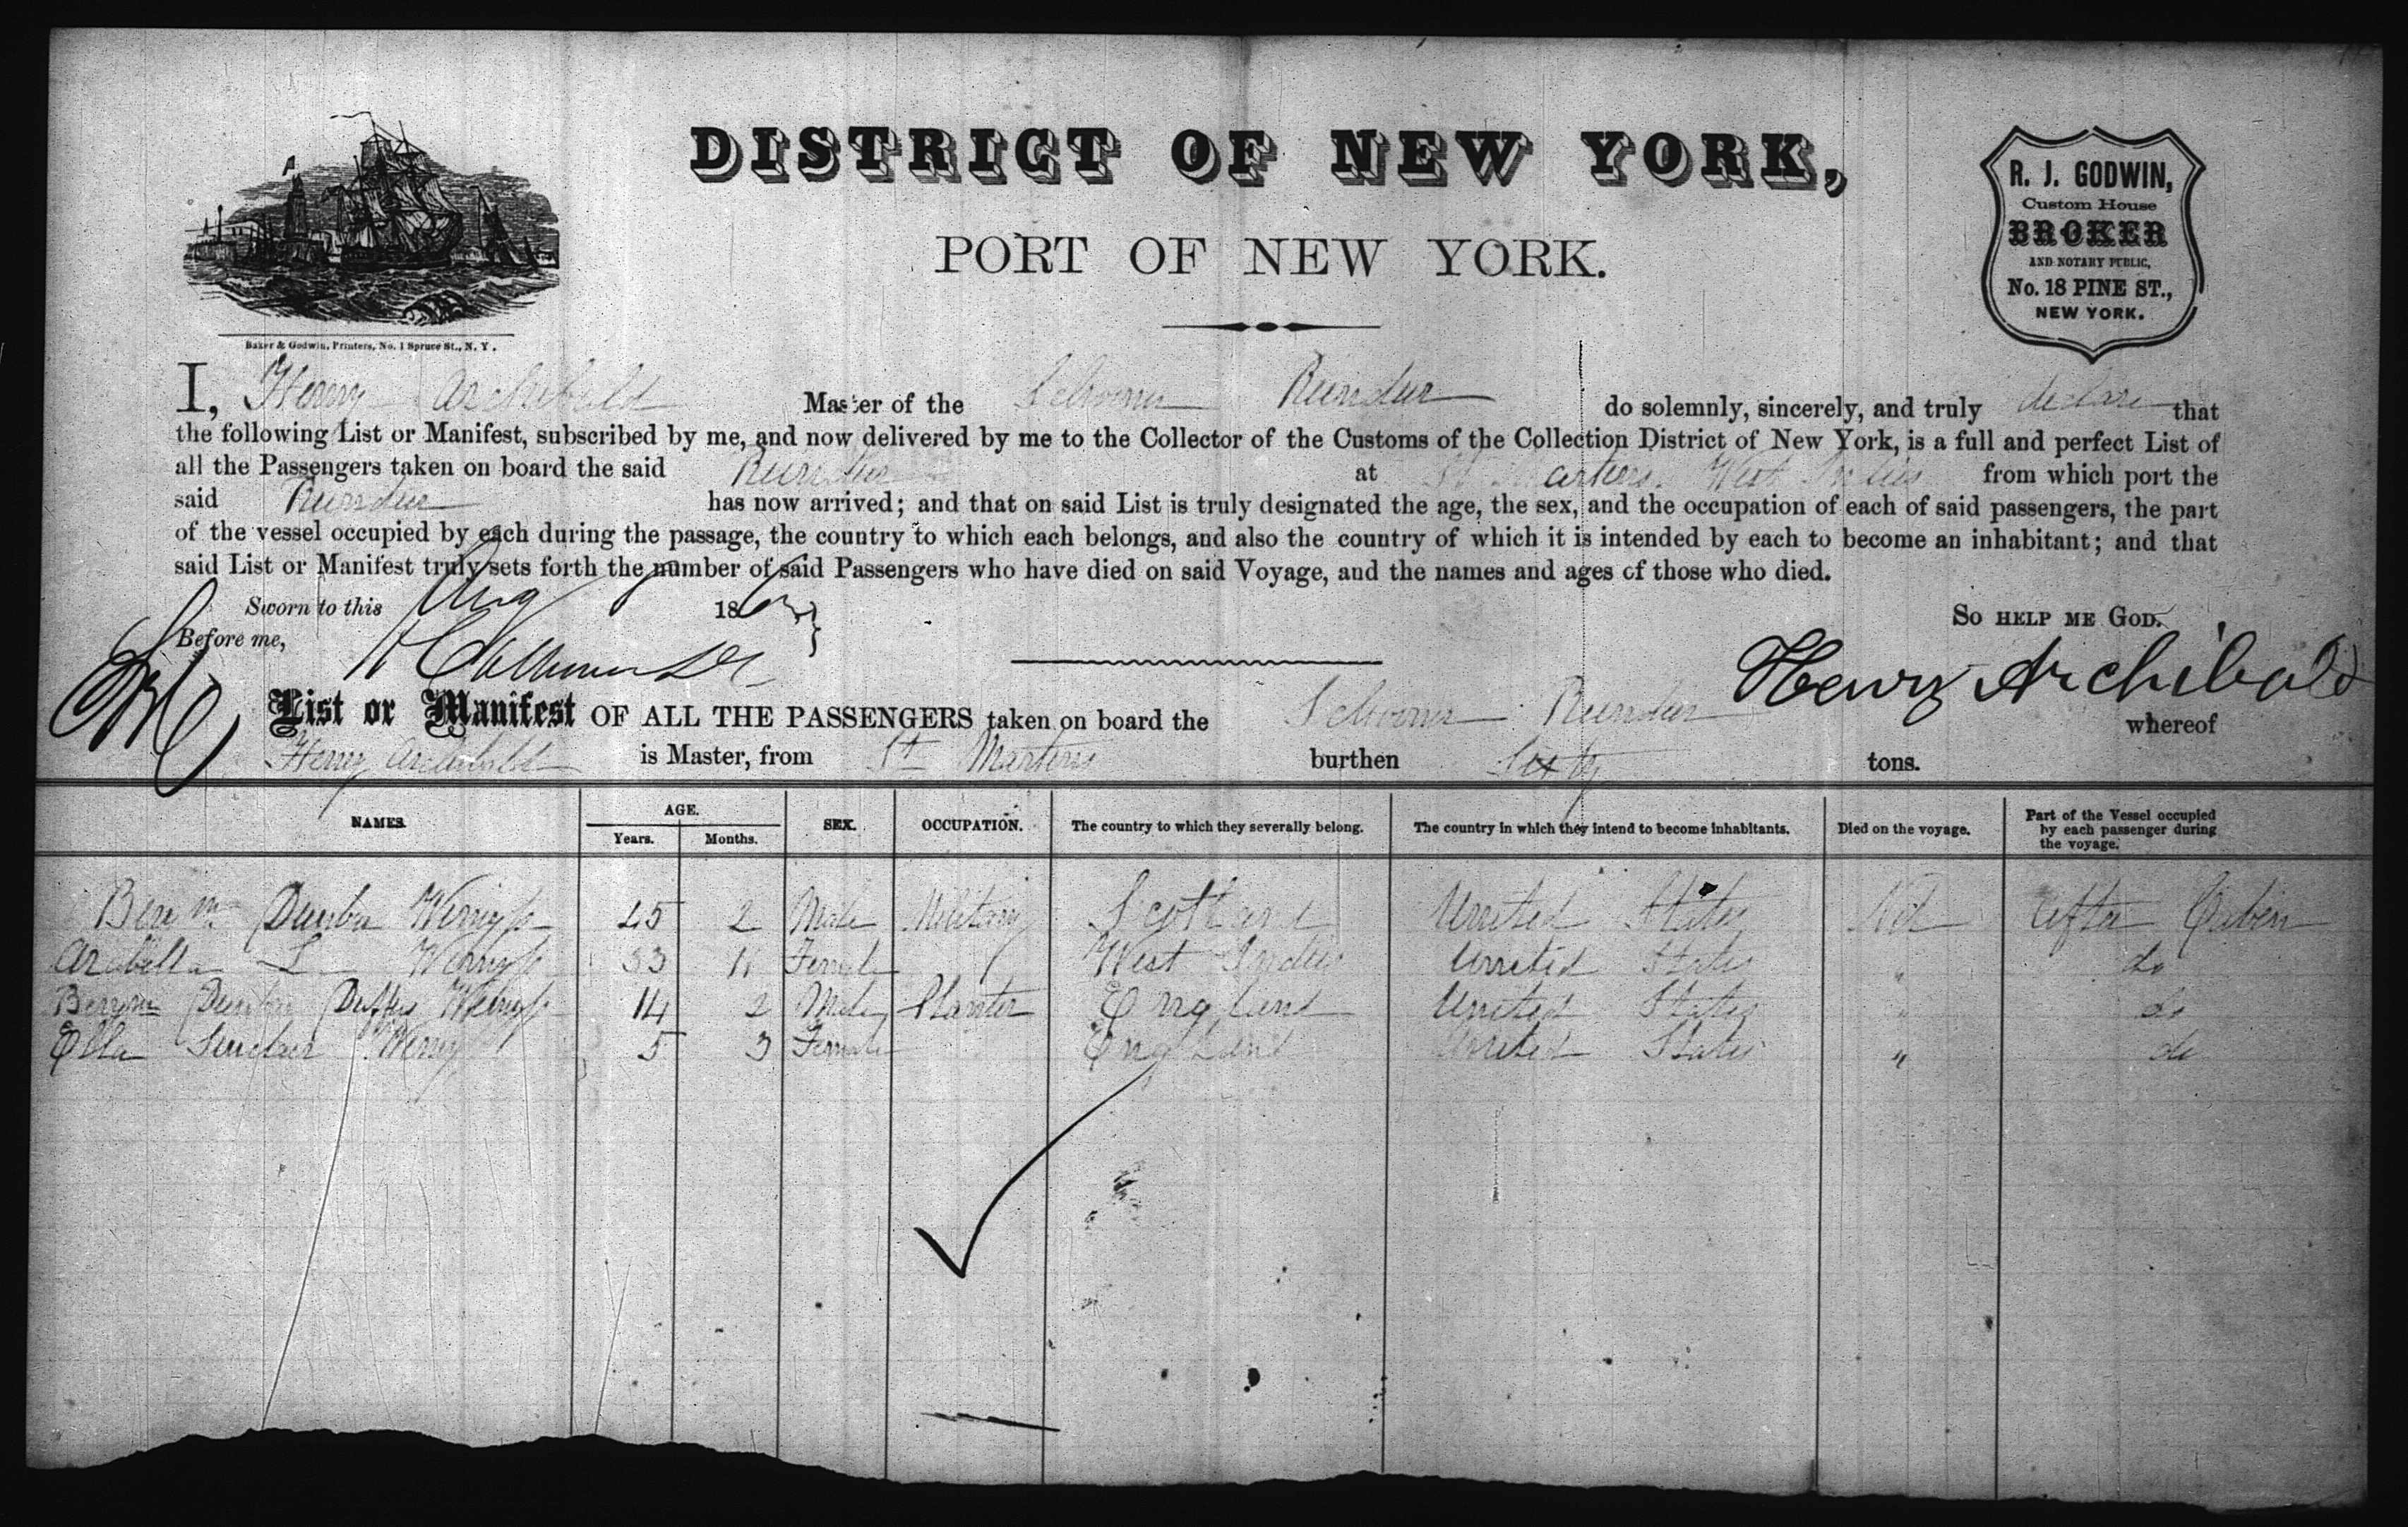 DISTRICT OF NEW YORK,
PORT OF NEW YORK.
R. J. GODWIN,
Custom House
BROKER
AND NOTARY PUBLIC,
No. 18 PINE ST.,
NEW YORK.
Baker & Godwin, Printers, No. 1 Spruce St., N. Y.
I, Henry Archibald Master of the Schooner do solemnly, sincerely, and truly declare that
the following List or Manifest, subscribed by me, and now delivered by me to the Collector of the Customs of the Collection District of New York, is a full and perfect List of
all the Passengers taken on board the said at St Martins West Indies from which port the
said has now arrived; and that on said List is truly designated the age, the sex, and the occupation of each of said passengers, the part
of the vessel occupied by each during the passage, the country to which each belongs, and also the country of which it is intended by each to become an inhabitant; and that
said List or Manifest truly sets forth the number of said Passengers who have died on said Voyage, and the names and ages of those who died.
Sworn to this Aug 186
So HELP ME GOD.
Before me,
Henry Archibald
List or Manifest OF ALL THE PASSENGERS taken on board the Schooner whereof
Henry Archibald is Master, from St Martins burthen Sixty tons.
NAMES. AGE. Years. Months. SEX. OCCUPATION. The country to which they severally belong. The country in which they intend to become inhabitants. Died on the voyage. Part of the Vessel occupied by each passenger during the voyage.
Dunbar 2 Male Military Scotland United States Nil After Cabin
Arabella 33 Female West Indies United States " do
Dunbar 14 2 Male Planter England United States " do
Ella Sinclair 5 3 Female England United States " do